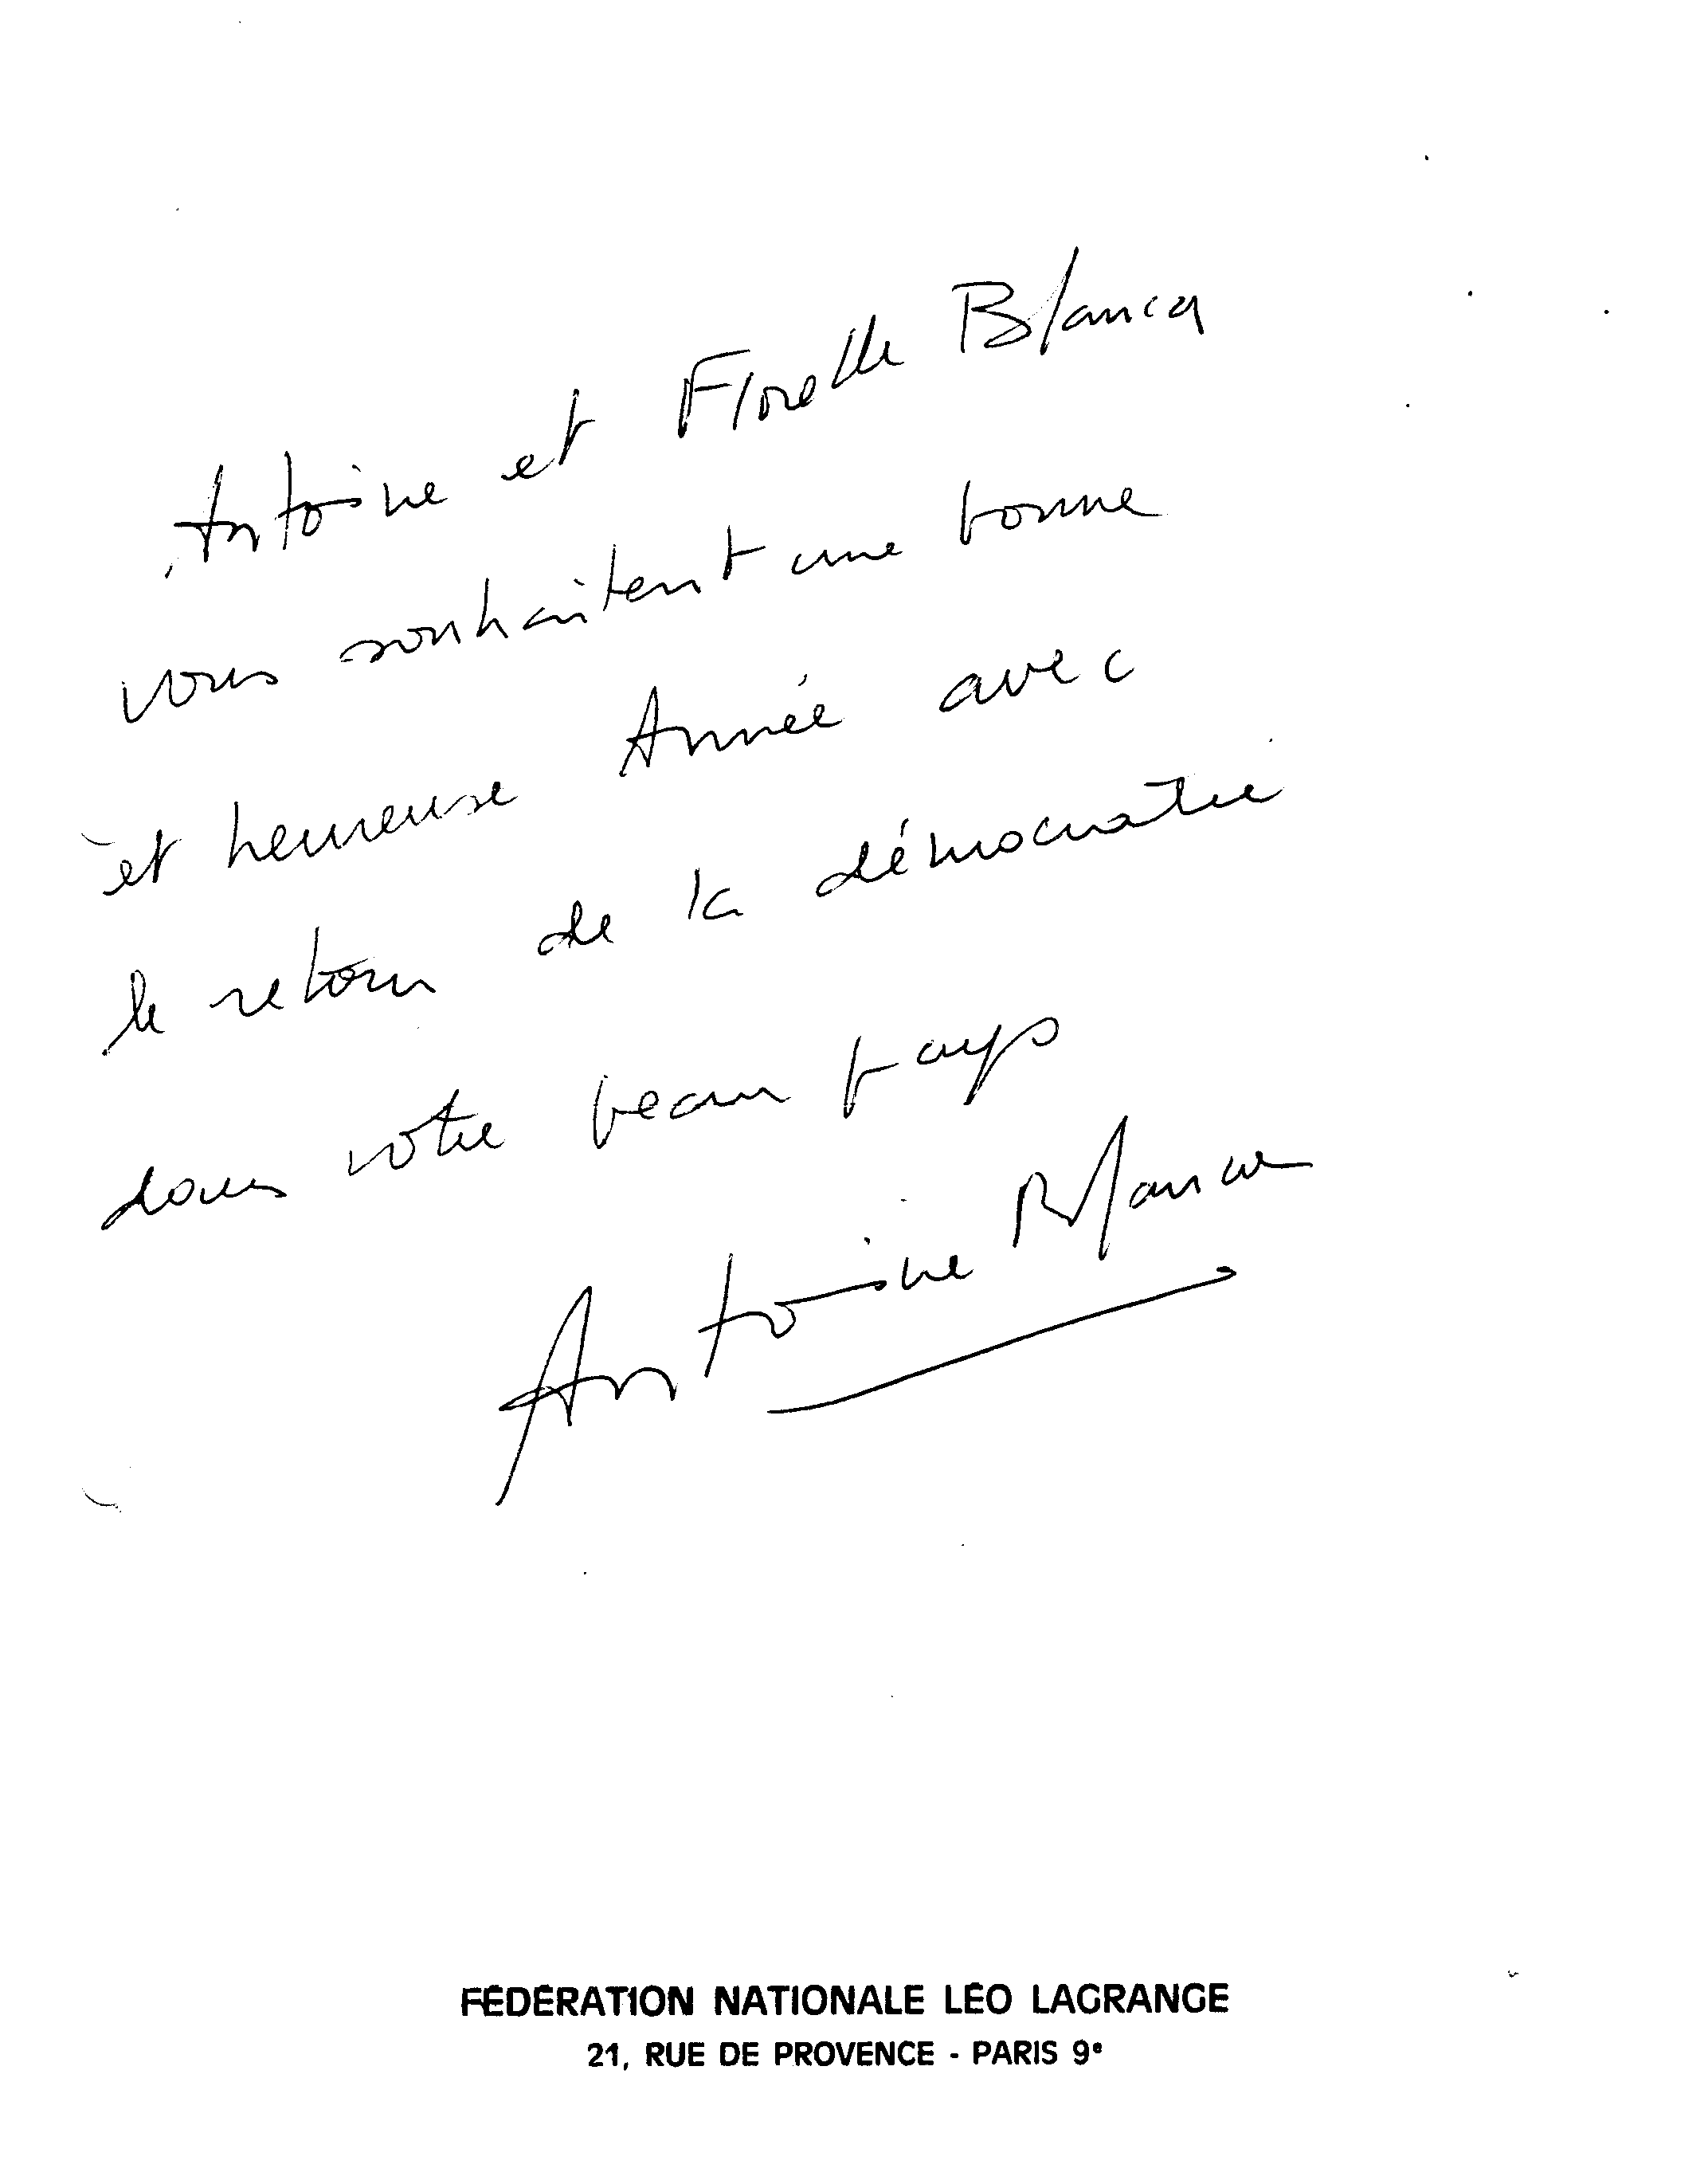 Antoine et Florelle Blanca
vous souhaitent une bonne
et heureuse Année avec
le retour de la démocratie
dans votre beau pays
Antoine Blanca
FÉDÉRATION NATIONALE LÉO LAGRANGE
21, RUE DE PROVENCE - PARIS 9e